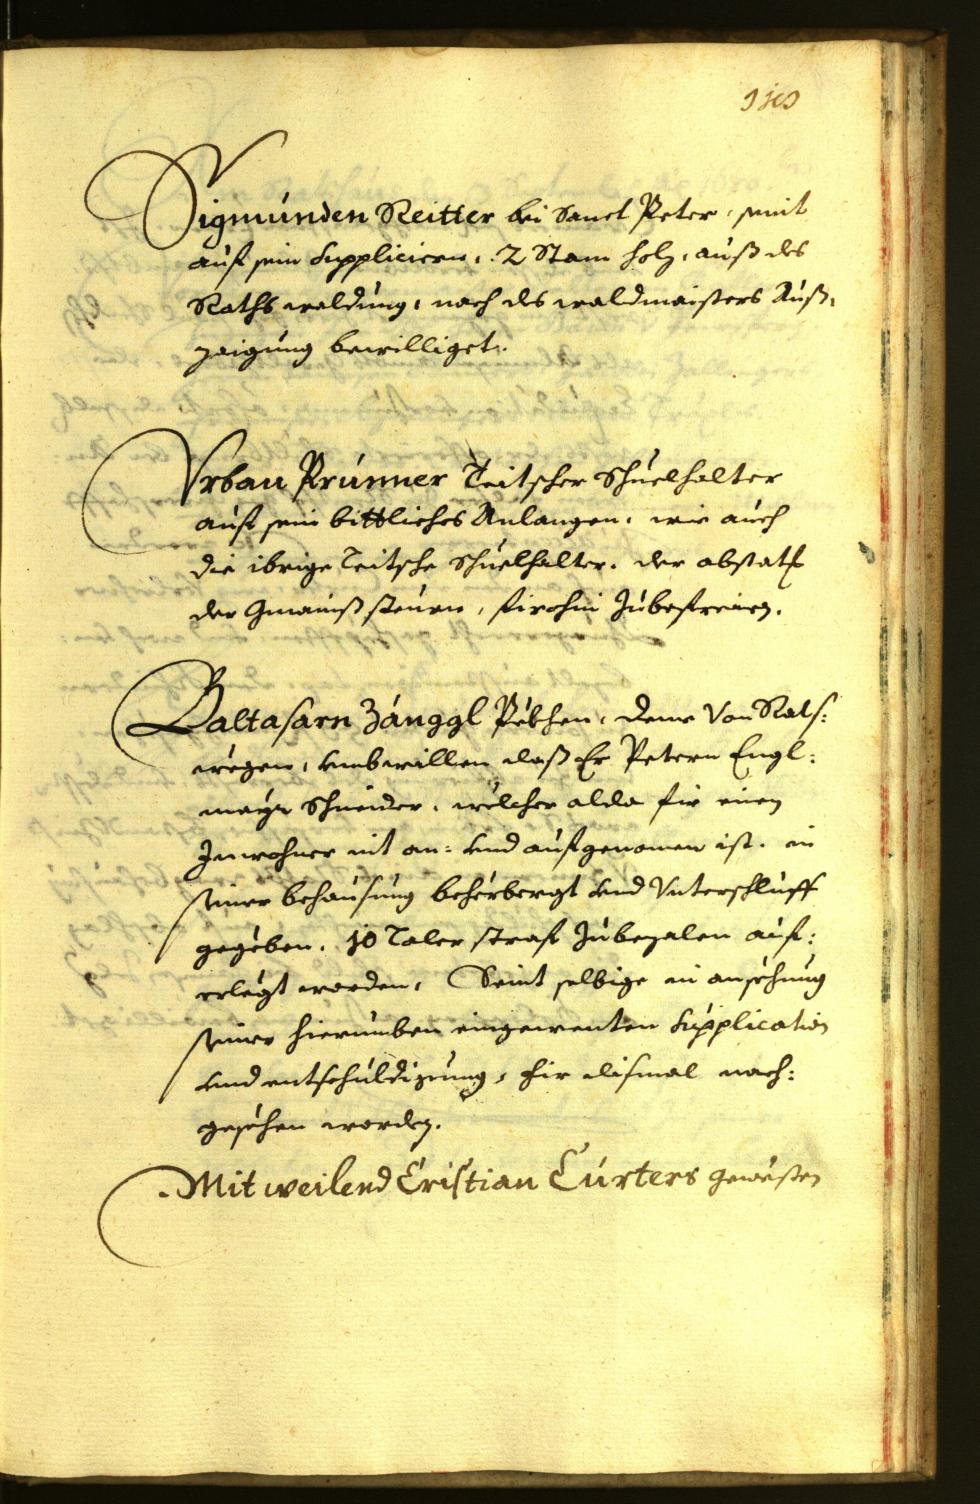 Sigmunden Reitter bei Sanct Peter, seint
auf sein Suppliciern, 2 Stam holz, auß des
Raths waldung, nach des waldmaisters Auß,
zaigung bewilliget.
Urban Prunner Teitscher Schuelhalter
auf sein bittliches Anlangen, wie auch
die ibrige Teitsche Schuelhalter, der abstatt
der Gmainß steurn, firohin zubefreien.
Baltasarn Zänggl Pékhen, deme Von Rats:
wegen, umbwillen daß Er Petern Engl:
mayr Schneider, welcher alda fir einen
Inwohner nit an: und aufgenomen ist, in
seiner behausung beherbergt und Unterschluff
gegeben, 10 Taler straf zubezalen auf:
erlegt worden, Seint selbige in ansehung
seiner hierumben eingewenten Supplication
und entschuldigung, fir dismal nach:
gesehen worden.
Mit weilend Cristian Curters gewesten